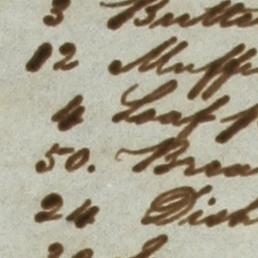 3 Butte
12 Muffi
4 Loaf
50. Brea
24 Dish